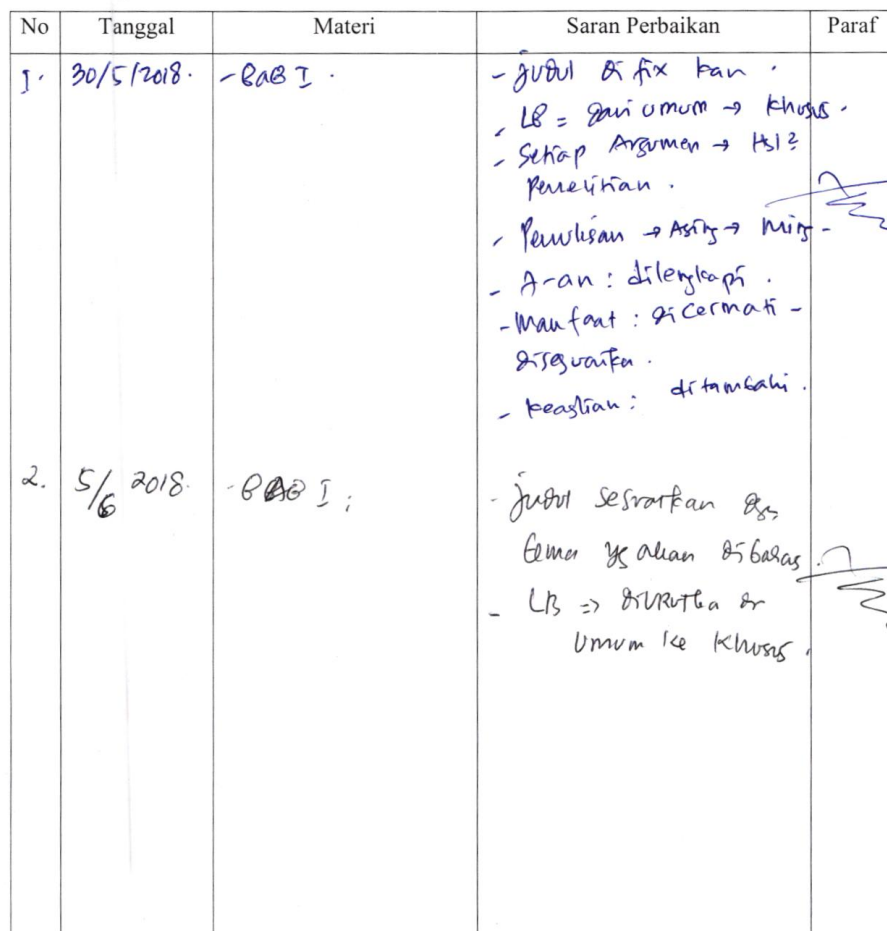 No Tanggal Materi Saran Perbaikan Paraf
1. 30/5/2018. - BAB I. - judul di fix kan.
- LB = dari umum → khusus.
- Setiap Argumen → Hsl2
Penelitian.
- Penulisan → Asing → miring
- A-an : dilengkapi.
- Manfaat : dicermati -
disesuaika.
- Keaslian : ditambahi.
2. 5/6 2018. - BAB I. - judul sesuaikan dg
tema yg akan dibahas.
- LB => diurutka dr
Umum ke Khusus.